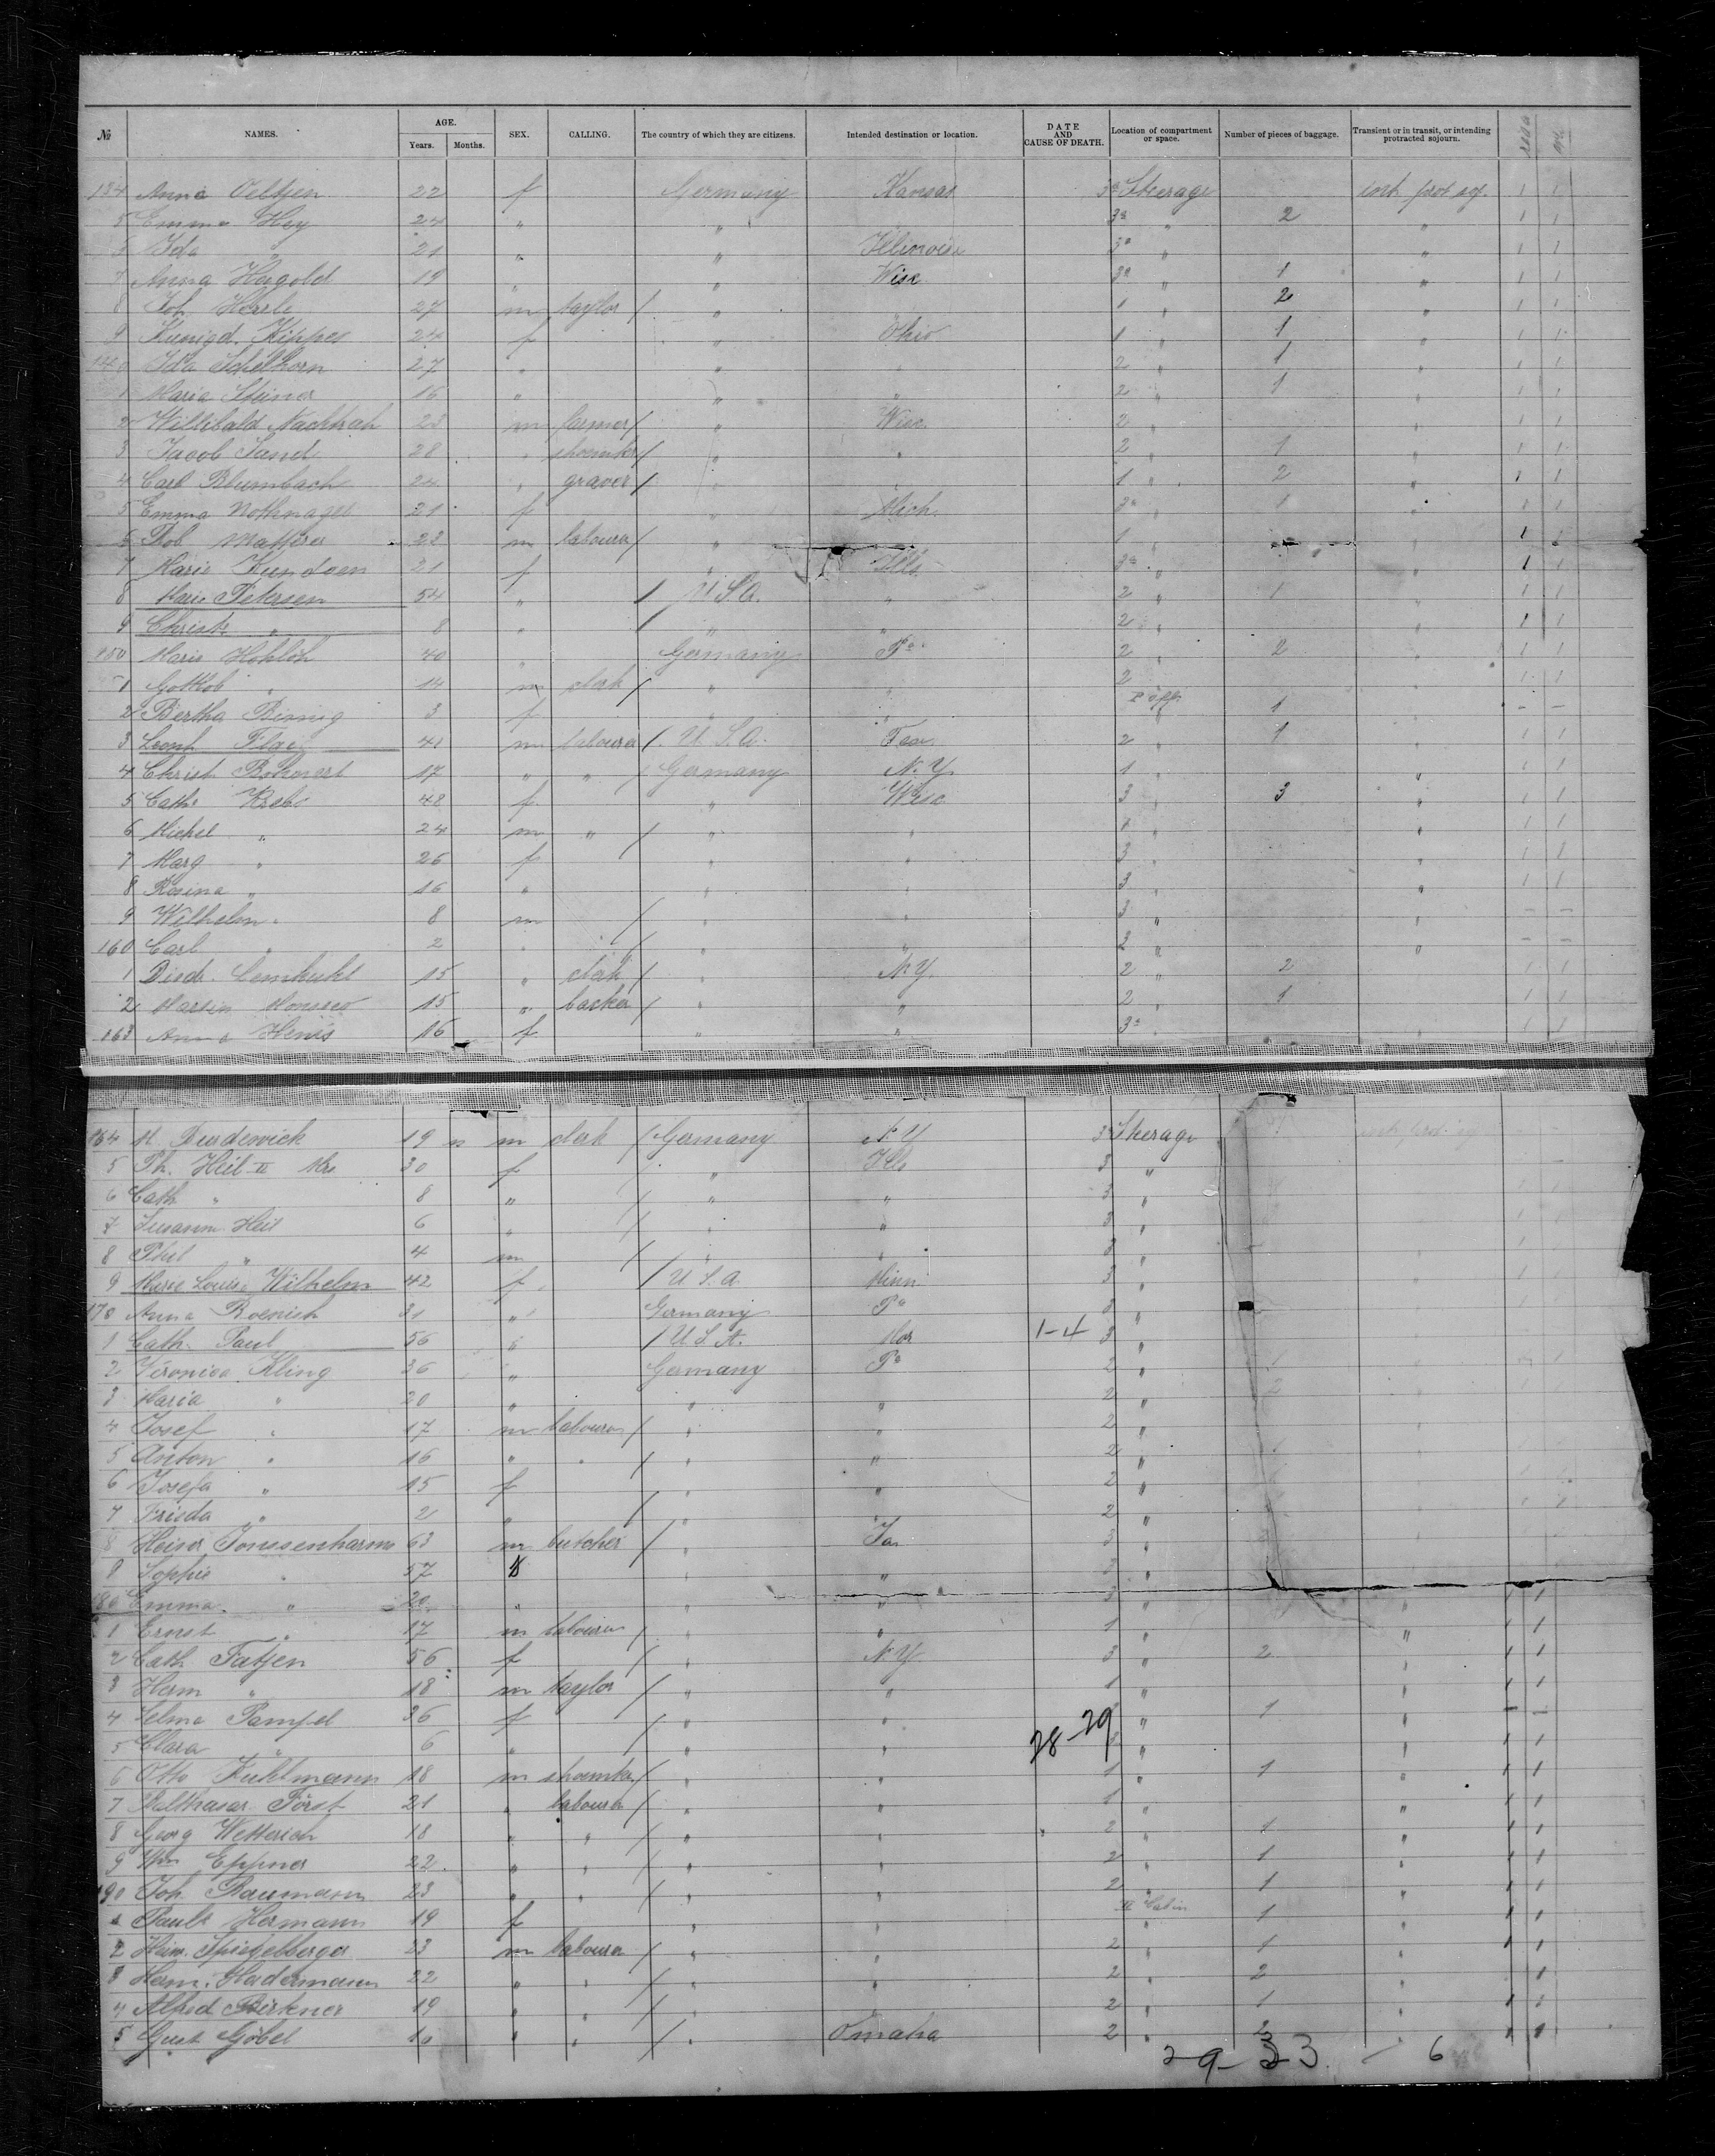 № NAMES. AGE. Years. Months. SEX. CALLING. The country of which they are citizens. Intended destination or location. DATE AND CAUSE OF DEATH. Location of compartment or space. Number of pieces of baggage. Transient or in transit, or intending protracted sojourn.
134 Anna Oeltjen 22 f Germany Kansas 3a Steerage 1 1
5 Emma Hey 24 " " 3a " 2 " 1 1
6 Ida " 21 " " Illinois 3a " " 1 1
7 Anna Hergold 19 " " Wisc 3a " 1 " 1 1
8 Joh. 27 m taylor / " 1 " 2 " 1 1
9 Kunigd. Kippes 24 f " Ohio 1 " 1 " 1 1
140 Ida Schelhorn 27 " " " 2 " 1 " 1 1
1 Maria Steiner 16 " " " 2 " 1 " 1 1
2 Willibald 23 m farmer / " Wisc. 2 " " 1 1
3 Jacob Sand 28 " shoemker / " " 2 " 1 " 1 1
4 Carl Blumbach 24 " graver / " " 1 " 2 " 1 1
5 Emma Nothnagel 21 f " Mich. 3a 1 " 1 1
6 Rob. 23 m labourer / " 1 " " 1 1
7 Marie 21 f " Ills. 3a " " 1 1
8 Marie Petersen 54 " / U.S.A. " 2 " 1 " 1 1
9 Christ. " 8 " / " " 2 " " 1 1
150 Marie Hohloh 40 " Germany Pa 2 " 2 " 1 1
1 Gottlob " 14 m clerk / " " 2 " 1 1
2 Bertha 3 f " " " 1 – –
3 Leonh 41 m labourer / U.S.A. 2 " 1 " 1 1
4 Christ. 17 " " / Germany N.Y. 1 " " 1 1
5 Cath. Krebs 48 f " Wisc 3 " 3 " 1 1
6 Michel " 24 m " / " " 1 " " 1 1
7 Marg " 26 f " " 3 " " 1 1
8 Rosina " 16 " " " 3 " " 1 1
9 Wilhelm " 8 m / " " 3 " " – –
160 Carl " 2 " / " " 3 " " – –
1 Diedr. Lemkuhl 15 " clerk / " N.Y. 2 " 2 " 1 1
2 Martin 15 " backer / " " 2 " 1 " 1 1
163 Anna 16 f " " 3a " " 1 1
164 M. 19 m clerk / Germany N.Y. 3a Steerage
5 Ph. Heil II Mrs 30 f / " Ills 3 "
6 Cath " 8 " / " " 3 "
7 Susanne Heil 6 " / " " 3 "
8 Phil " 4 m / " " 3 "
9 Marie Louise Wilhelm 42 f / U.S.A. Minn 3 "
170 Anna 31 " Germany Pa 3 "
1 Cath. Paul 56 " / U.S.A. 1-4 3 "
2 Veronica Kling 36 " Germany Pa 2 " 1
3 Maria " 20 " " " 2 " 2
4 Josef " 17 m labourer / " " 2 "
5 Anton " 16 " " / " " 2 "
6 Josefa " 15 f " " 2 "
7 Frieda " 2 " / " " 2 "
8 63 m butcher / " 3 "
9 Sophie " 57 " " 3 "
180 Emma " 20 " " " 3 " " 1 1
1 Ernst " 17 m labourer / " " 1 " " 1 1
2 Cath. Tatjen 56 f / " N.Y. 3 " 2 " 1 1
3 Herm " 18 m taylor / " " 1 " " 1 1
4 Selma Pampel 36 f / " " " 1 " – –
5 Clara " 6 " / " " 28-29 " " 1 1
6 Otto Kuhlmann 18 m shoemker / " " 1 " 1 " 1 1
7 Balthasar Först 21 " labourer / " " 1 " " 1 1
8 Georg Wetterich 18 " " / " " 2 " 1 " 1 1
9 Wm Eppner 22 " " / " " 2 " 1 " 1 1
190 Joh. Baumann 23 " " / " " 2 " 1 " 1 1
1 Paula Hermann 19 f " " II Cabin 1 " 1 1
2 Heinr. Spiegelberger 23 m labourer / " " 2 " 1 " 1 1
3 Herm. Hadermann 22 " " / " " 2 " 2 " 1
4 Alfred Birkner 19 " " / " " 2 " 1 " 1 1
5 Gust Göbel " " / " Omaha 2 " 2 " 1 1
29-33. – 6